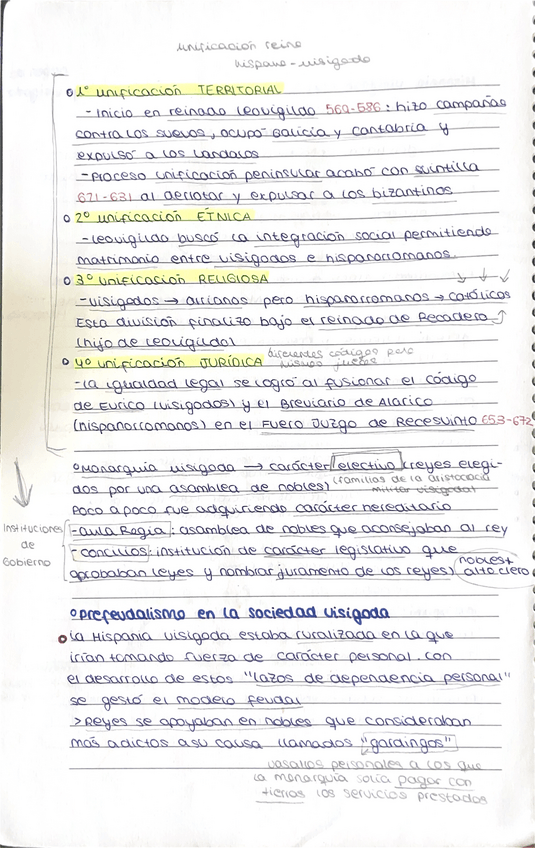 unificación reino
hispano-visigodo
1º unificación TERRITORIAL
- Inicio en reinado Leovigildo 569-586: hizo campañas
contra los suevos, ocupó Galicia y Cantabria y
expulsó a los
- Proceso unificación peninsular acabó con Suintilla
621-631 al derrotar y expulsar a los bizantinos
2º unificación ÉTNICA
- Leovigildo buscó la integración social permitiendo
matrimonio entre visigodos e hispanorromanos.
3º unificación RELIGIOSA
- visigodos → arrianos pero hispanorromanos → católicos
Esta división finalizo bajo el reinado de Recadero
(hijo de Leovigildo)
4º unificación JURÍDICA
diferentes códigos para
mismos jueces
- la igualdad legal se logró al fusionar el código
de Eurico (visigodos) y el Breviario de Alarico
(hispanorromanos) en el Fuero Juzgo de Recesvinto 653-672
Monarquía visigoda → carácter electivo (reyes elegi-
dos por una asamblea de nobles)
(familias de la aristocracia
militar visigoda)
Poco a poco fue adquiriendo carácter hereditario
Instituciones
de
Gobierno
- Aula Regia: asamblea de nobles que aconsejaban al rey
- concilios: institución de carácter legislativo que
aprobaban leyes y nombrar juramento de los reyes)
nobles +
alto clero
Prefeudalismo en la sociedad visigoda
La Hispania visigoda estaba ruralizada en la que
irían tomando fuerza de carácter personal. Con
el desarrollo de estos "lazos de dependencia personal"
se gestó el modelo feudal
> Reyes se apoyaban en nobles que consideraban
más adictos a su causa llamados "gardingos"
vasallos personales a los que
la monarquía solía pagar con
tierras los servicios prestados